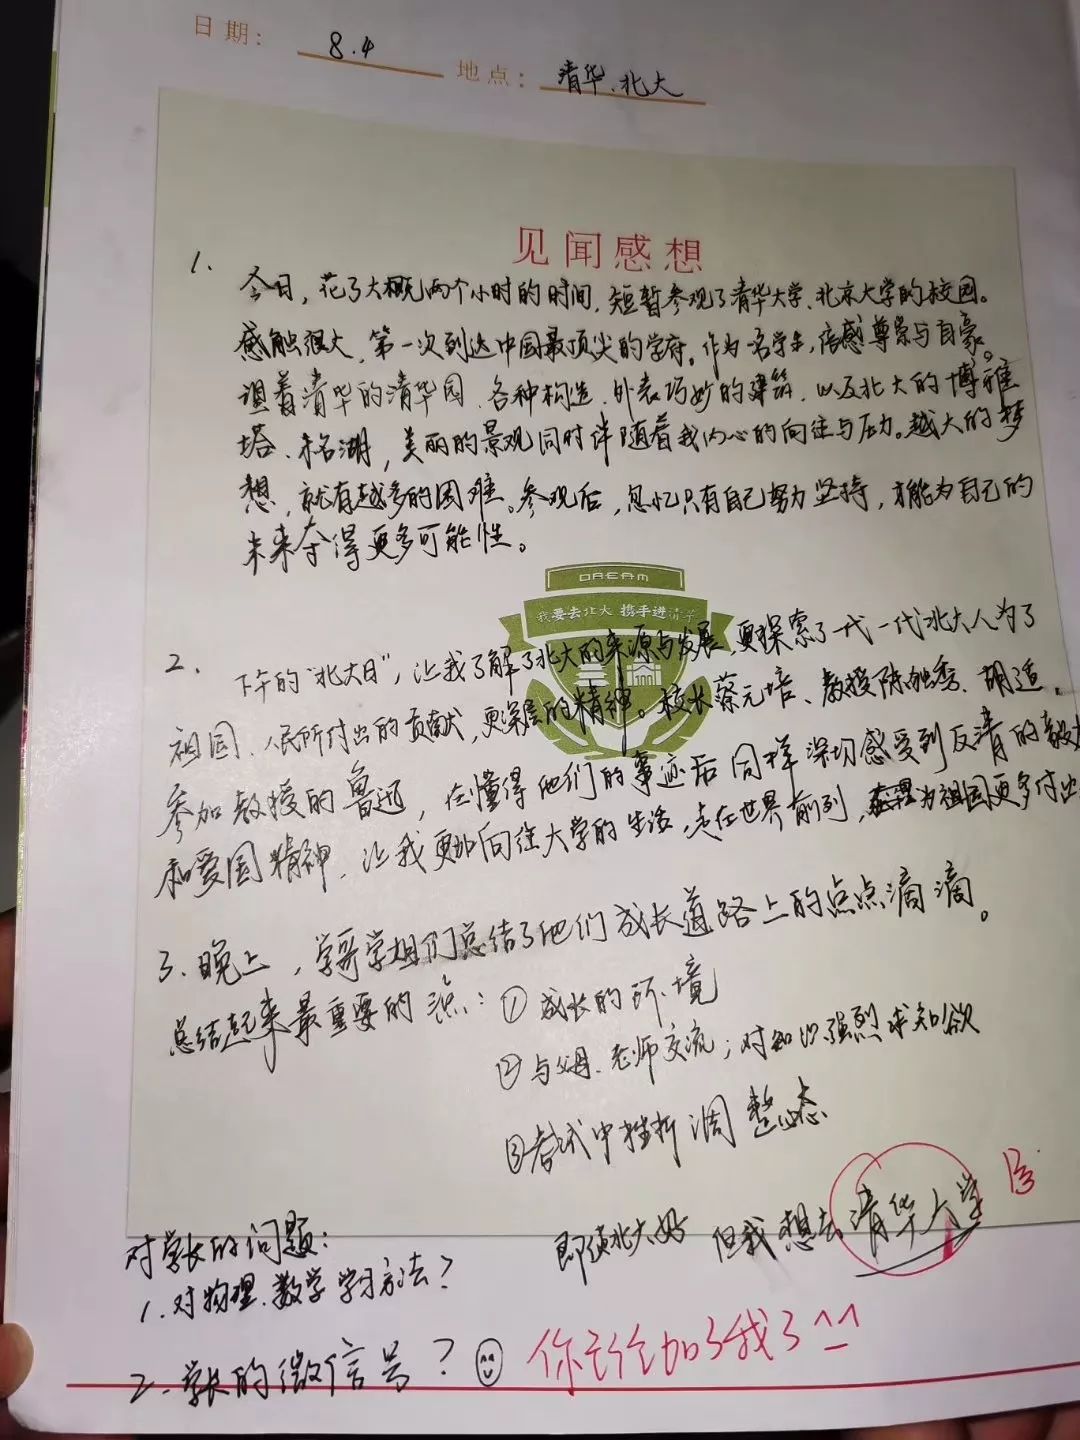 日期: 8.4
地点: 清华、北大
见闻感想
1. 今日，花了大概两个小时的时间，短暂参观了清华大学、北京大学的校园。
感触很大，第一次到达中国最顶尖的学府。作为一名学生，倍感尊崇与自豪。
清华的清华园、各种构造、外表巧妙的建筑，以及北大的博雅
塔、未名湖，美丽的景观同时伴随着我内心的向往与压力。越大的梦
想，就有越多的困难。参观后，只有自己努力坚持，才能为自己的
未来夺得更多可能性。
DREAM
我要去北大 携手进清华
2. 下午的“北大日”，让我了解了北大的来源与发展，更探索了一代一代北大人为了
祖国、人民所付出的贡献，更深层的精神。校长蔡元培、教授陈独秀、胡适、
参加教授的鲁迅，在懂得他们的事迹后同样深切感受到反清的
和爱国精神，让我更加向往大学的生活，走在世界前列，为祖国更多付出
3. 晚上，学哥学姐们总结了他们成长道路上的点点滴滴。
总结起来最重要的点：① 成长的环境
② 与父母、老师交流；对知识强烈求知欲
③ 考试中挫折调整心态
对学长的问题：
即使北大好 但我想去清华大学
1. 对物理、数学学习方法？
2. 学长的微信号？
你已经加了我了^^